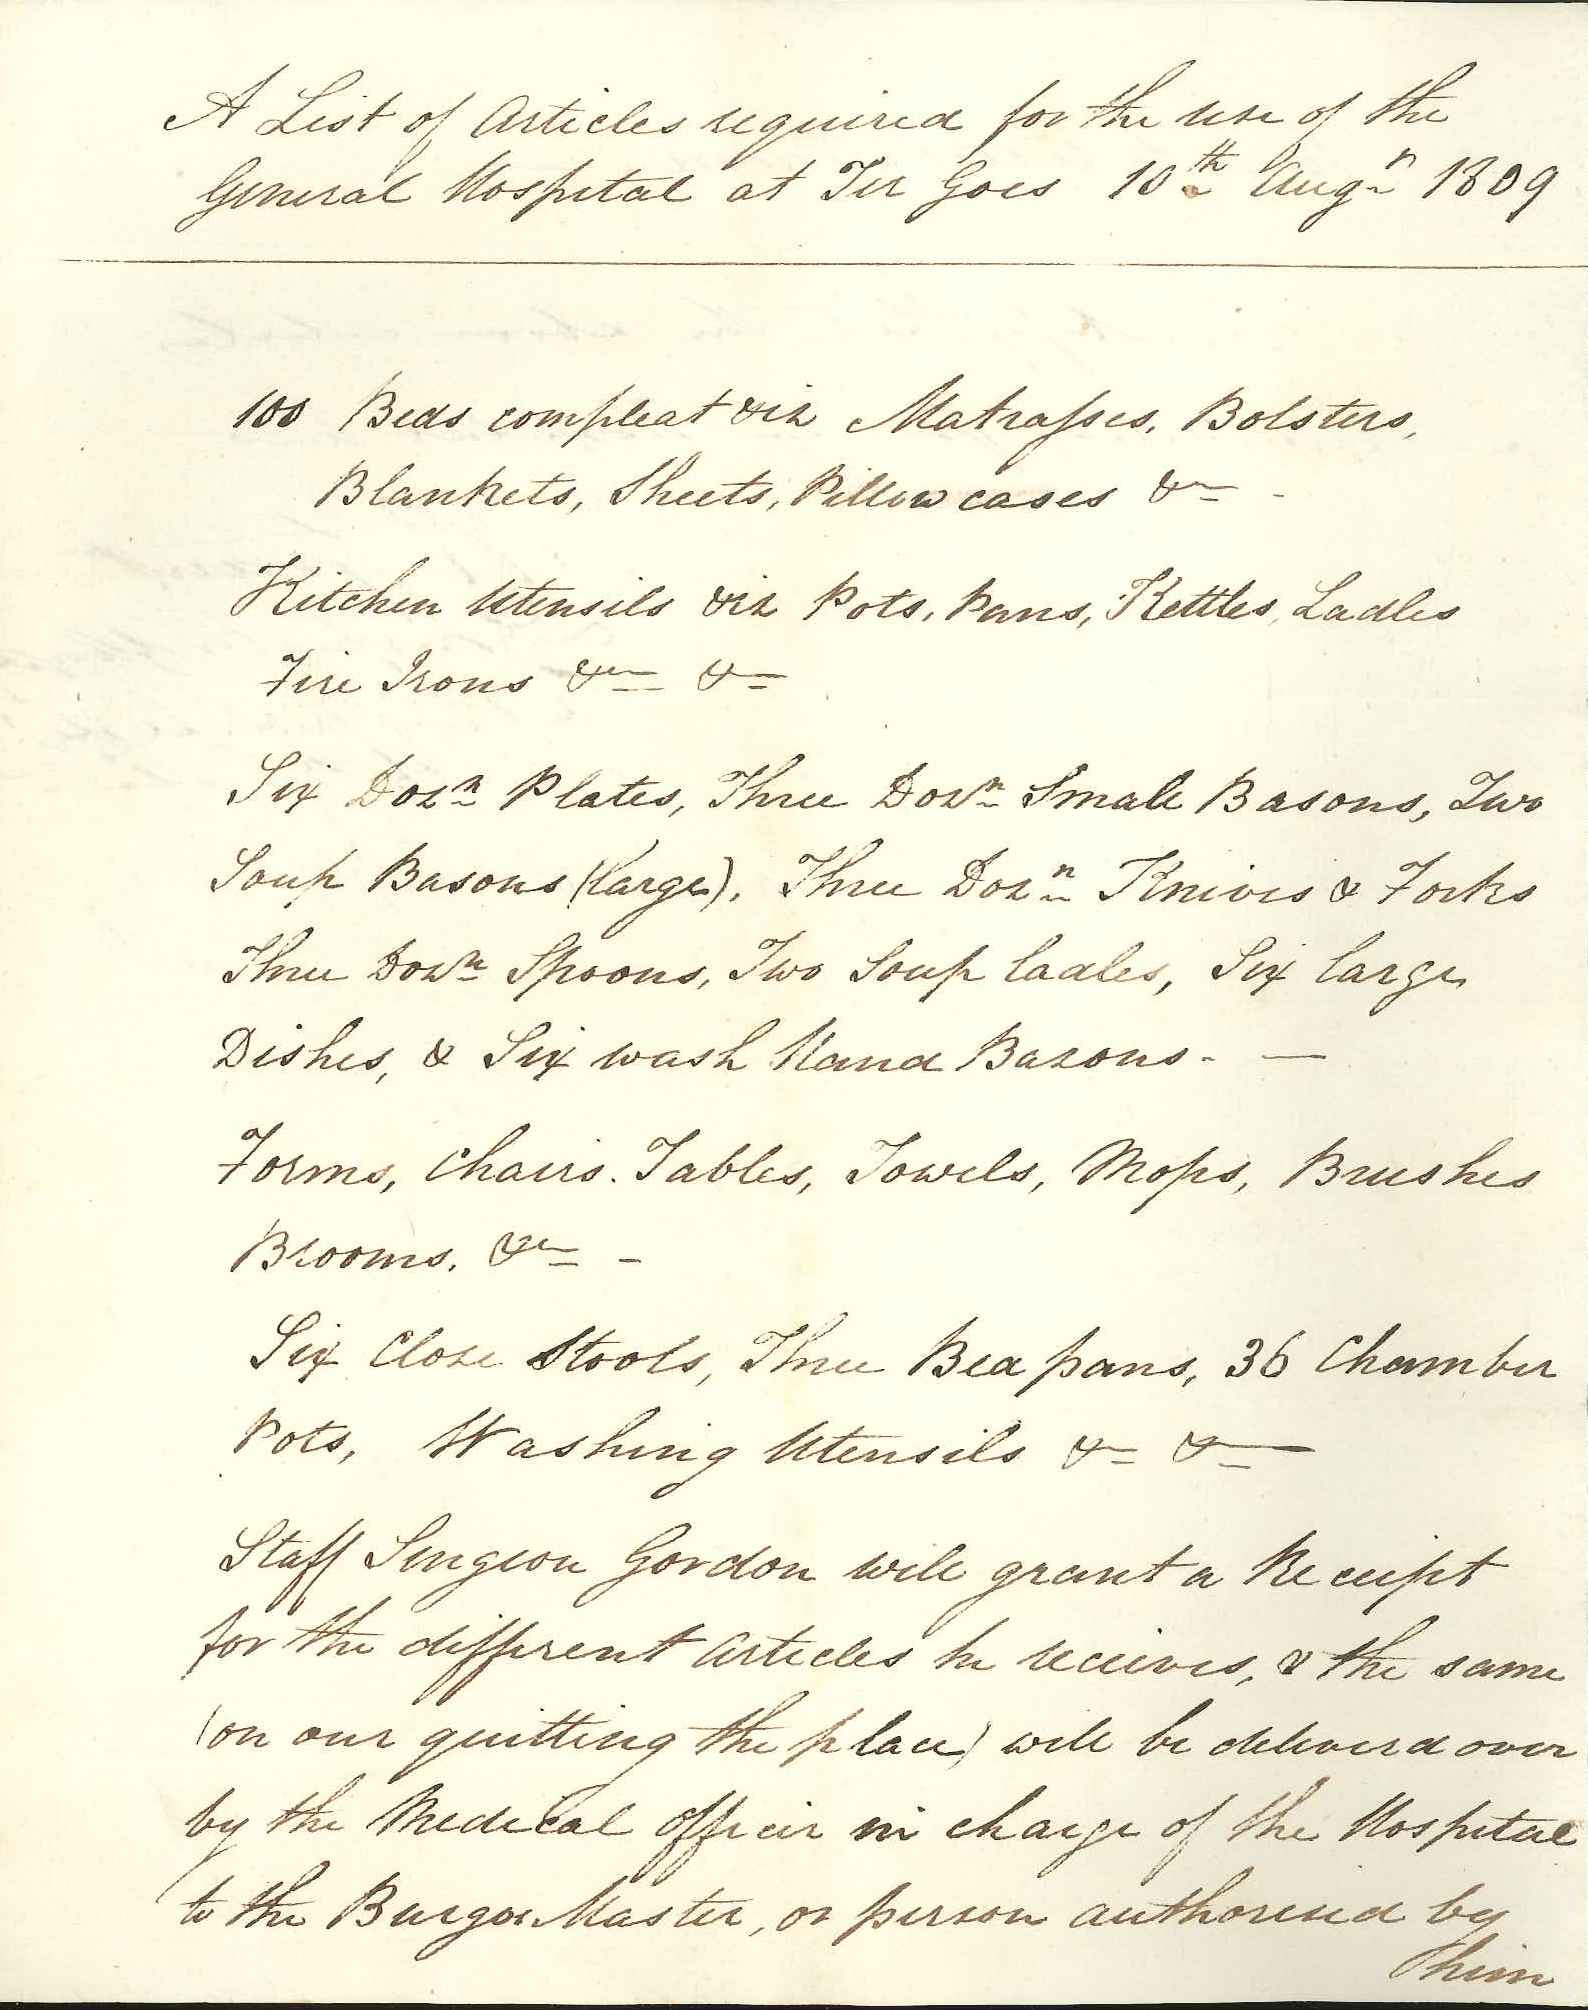 A List of Articles required for the use of the
General Hospital at Ter Goes 10th Augn 1809
100 Beds compleat viz Matrasses, Bolsters,
Blankets, Sheets, Pillow cases &c -
Kitchen Utensils viz Pots, Pans, Kettles, Ladles
Fire Irons &c &c
Six Dozn Plates, Three Dozn Small Basons, Two
Soup Basons (large), Three Dozn Knives & Forks
Three Dozn Spoons, Two Soup ladles, Six large
Dishes, & Six wash Hand Bazons - —
Forms, Chairs. Tables, Towels, Mops, Brushes
Brooms. &c -
Six Close Stools, Three Bed pans, 36 Chamber
Pots, Washing Utensils &c &c
Staff Surgeon Gordon will grant a Receipt
for the different Articles he receives, & the same
(on our quitting the place) will be deliverd over
by the Medical Officer in charge of the Hospital
to the Burgo Master, or person authorised by
him